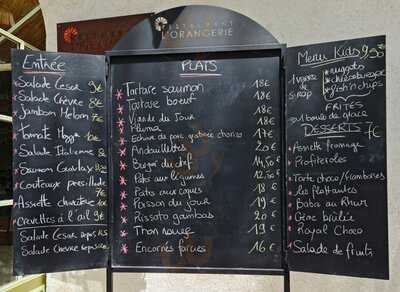 RESTAURANT
L'ORANGERIE
Entrée
Salade Cesar 9€
Salade Chèvre 8€
Jambon Melon 7€
Tomate Mozza 7€
Salade Italienne 8€
Saumon Gravlax
Couteaux persillade
7€
Assiette charcuterie
10€
Crevettes à l'ail 9€
Salade Cesar Repas
Salade Chevre repas
PLATS
Tartare saumon 18€
Tartare boeuf 18€
Viande du Jour 18€
Pluma 18€
Echine de porc chorizo 17€
Andouillettes 20€
Burger du chef 14,50€
Pates aux légumes 12,50€
Pates aux coques 18€
Poisson du jour 19€
Rissoto gambas 20€
Thon rouge 19€
Encornets farcies 16€
Menu Kids 9,50
1 verre de SIROP
nuggets
fish'n chips
FRITES
1 boule de glace
DESSERTS 7€
Assiette fromage
Profiteroles
Tarte choco/framboises
Iles flottantes
Baba au Rhum
Crème brûlée
Royal Choco
Salade de fruits